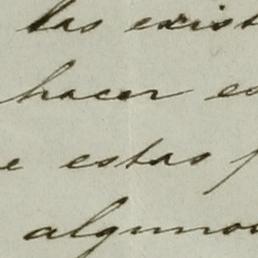 las exist
hacer es
e estas p
algunos